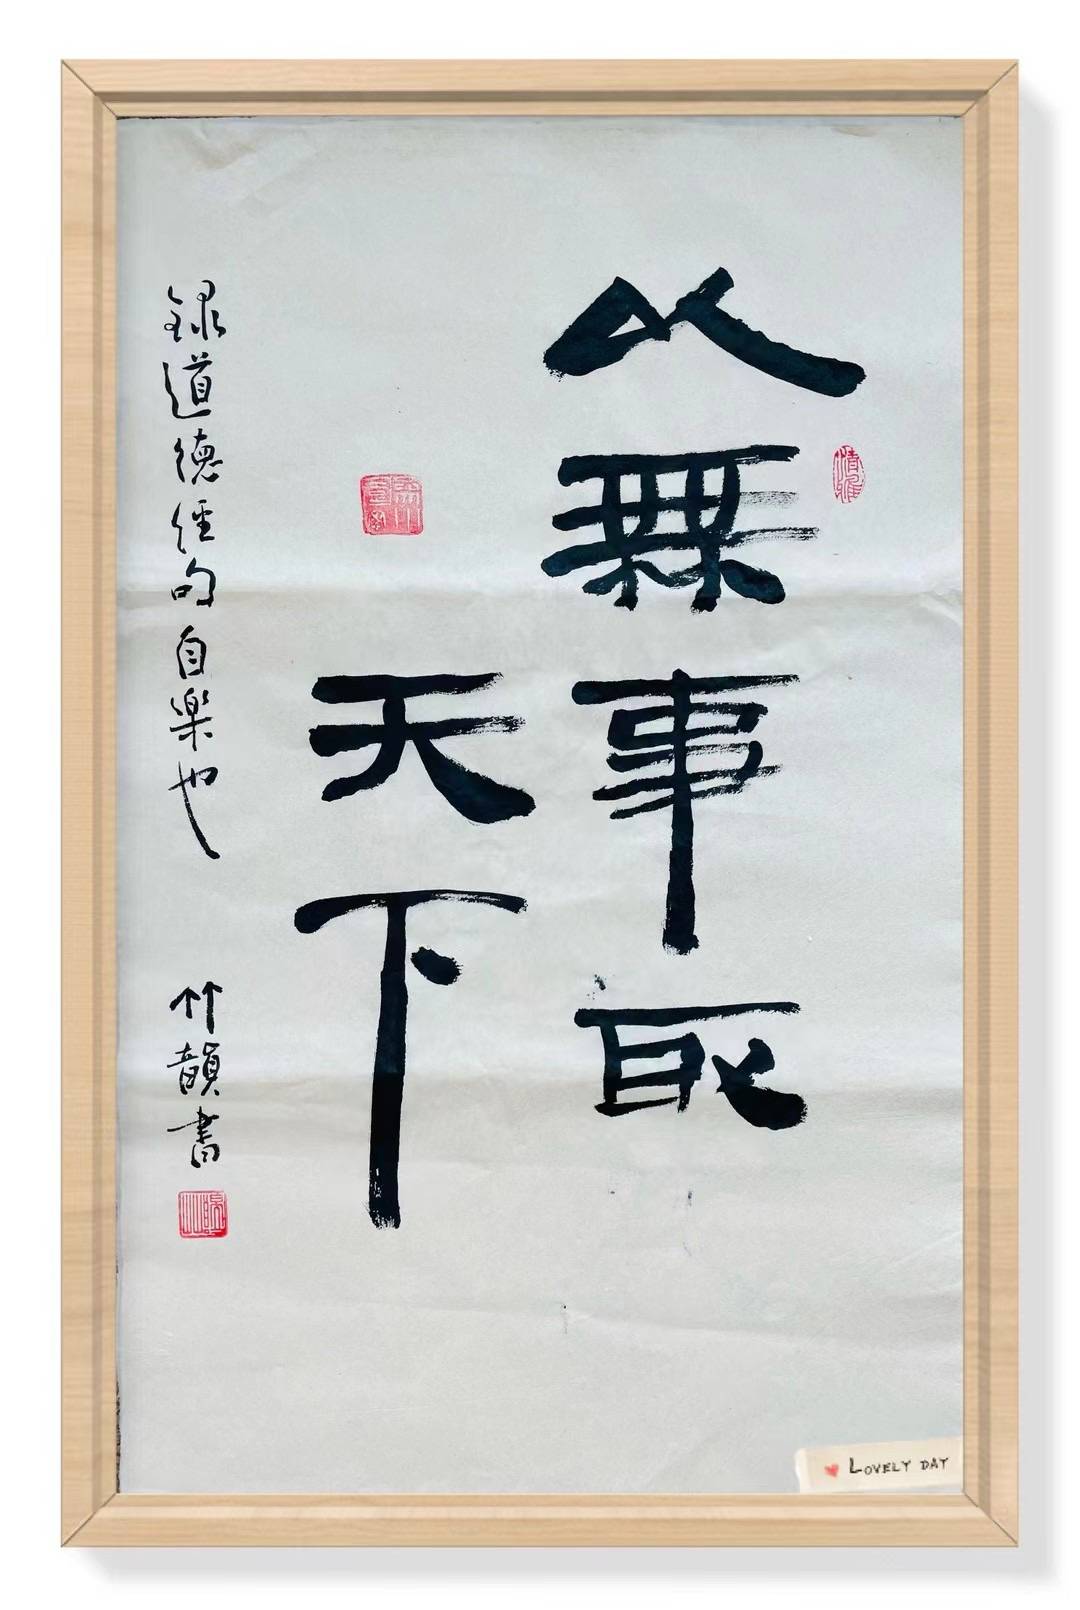 以無事取
天下
録道德經句自樂也
竹韻書
LOVELY DAY